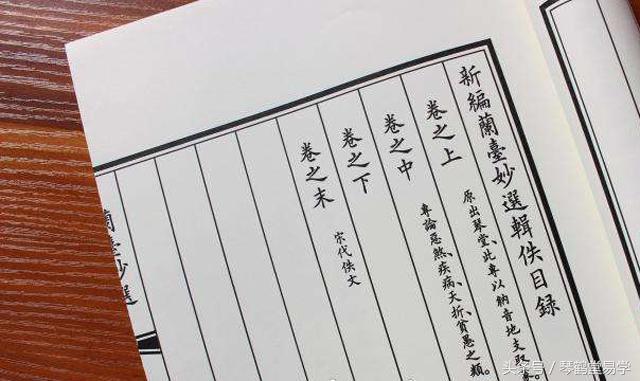 新編蘭臺妙選輯佚目錄
卷之上
原出琴堂、此專以納音地支取象。
卷之中
專論惡煞、疾病、夭折、貧惡之類。
卷之下
卷之末
宋代佚文
蘭臺妙選
头条号／琴鹤堂易学